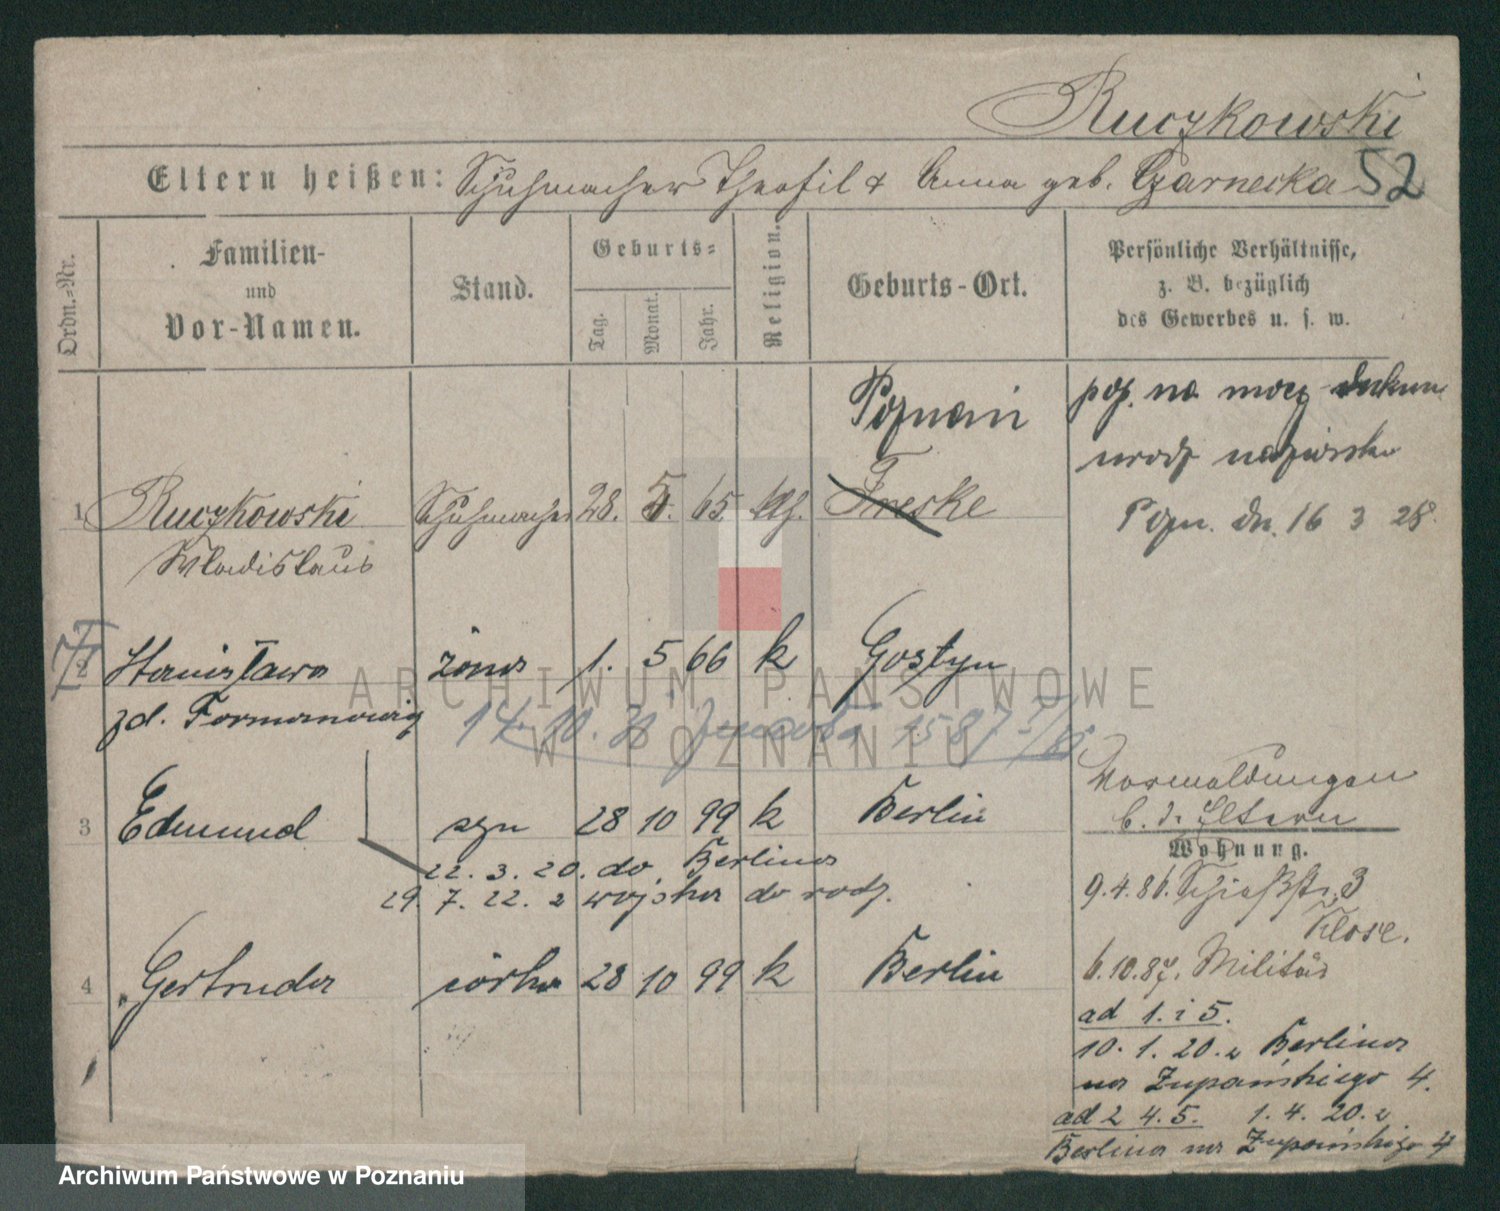 Ruczkowski
52
Eltern heißen: Schuhmacher Theofil & Anna geb. Czarnecka
Ordn.-Nr.
Familien-
und
Vor-Namen.
Stand.
Geburts-
Tag.
Monat.
Jahr.
Religion.
Geburts-Ort.
Persönliche Verhältnisse,
z. B. bezüglich
des Gewerbes u. s. w.
Poznań
na mocy dokum
urodz nazwisko
Pozn. dn. 16 3 28.
1 Ruczkowski Schuhmacher 28. 5. 65. kth.
Wladislaus
2 Stanisława żona 1. 5 66 k Gostyn
zd. Formanowicz
14. 10.
Vormeldungen
b. d. Eltern
3 Edmund syn 28 10 99 k Berlin
Wohnung.
22. 3. 20. do Berlina
29. 7. 22. z wojska do rodz.
9.4.86. Schießstr. 3
Klose.
4 Gertruda córka 28 10 99 k Berlin
6.10.87. Militär
ad 1. i 5.
10. 1. 20. z Berlina
na Zupańskiego 4.
ad 2 4. 5. 1. 4. 20. z
Berlina na Zupańskiego 4
ARCHIWUM PAŃSTWOWE
W POZNANIU
Archiwum Państwowe w Poznaniu